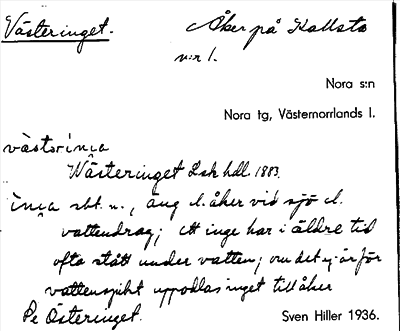 Västeringet.
Åker på Kallsta
n:r 1.
Nora s:n
Nora tg, Västernorrlands l.
västəriŋa
Wästeringet Lsk hdl. 1883.
iŋa sbt. n., äng el. åker vid sjö el.
vattendrag; ett inge har i äldre tid
ofta stått under vatten; om det ej är för
vattensjukt uppodlas inget till åker
Österinget.
Sven Hiller 1936.